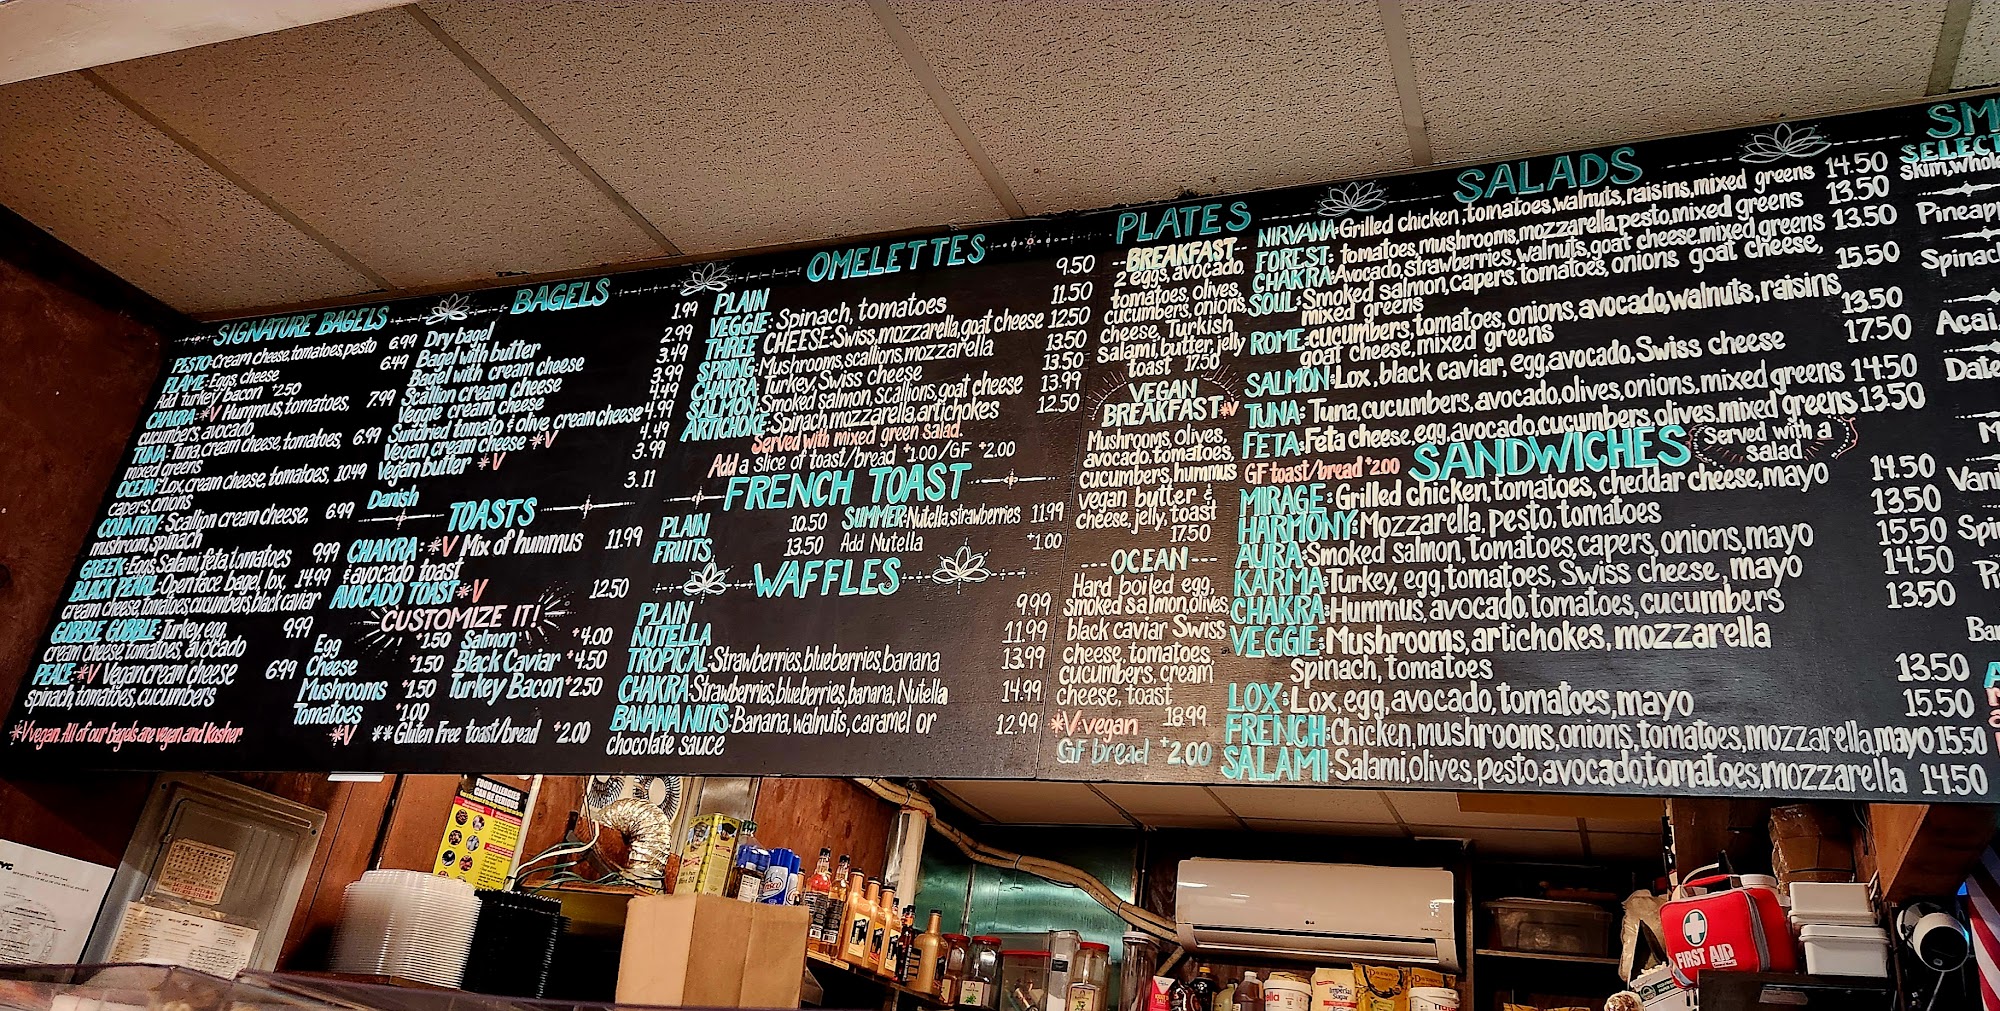 SIGNATURE BAGELS
PESTO: Cream cheese, tomatoes, pesto 6.99
FLAME: Eggs, cheese 6.49
Add turkey bacon +2.50
CHAKRA: *V Hummus, tomatoes, 7.99
cucumbers, avocado
TUNA: Tuna, cream cheese, tomatoes 6.99
mixed greens
OCEAN: Lox, cream cheese, tomatoes, 10.49
capers, onions
COUNTRY: Scallion cream cheese, 6.99
mushroom, spinach
GREEK: Eggs, Salami, feta, tomatoes 9.99
BLACK PEARL: Open face bagel, lox, 14.99
cream cheese, tomatoes, cucumbers, black caviar
GOBBLE GOBBLE: Turkey, egg, 9.99
cream cheese, tomatoes, avocado
PEACE: *V Vegan cream cheese 6.99
spinach, tomatoes, cucumbers
*V vegan. All of our bagels are vegan and Kosher
BAGELS
Dry bagel 1.99
Bagel with butter 2.99
Bagel with cream cheese 3.49
Scallion cream cheese 3.99
Veggie cream cheese 4.49
Sundried tomato & olive cream cheese 4.99
Vegan cream cheese *V 4.49
Vegan butter *V 3.99
Danish 3.11
TOASTS
CHAKRA: *V Mix of hummus 11.99
& avocado toast
AVOCADO TOAST *V 12.50
CUSTOMIZE IT!
Egg +1.50 Salmon +4.00
Cheese +1.50 Black Caviar +4.50
Mushrooms +1.50 Turkey Bacon +2.50
Tomatoes +1.00
*V **Gluten Free toast/bread +2.00
OMELETTES
PLAIN 9.50
VEGGIE: Spinach, tomatoes 11.50
THREE CHEESE: Swiss, mozzarella, goat cheese 12.50
SPRING: Mushrooms, scallions, mozzarella 13.50
CHAKRA: Turkey, Swiss cheese 13.50
SALMON: Smoked salmon, scallions, goat cheese 13.99
ARTICHOKE: Spinach, mozzarella, artichokes 12.50
Served with mixed green salad.
Add a slice of toast/bread +1.00/GF +2.00
FRENCH TOAST
PLAIN 10.50 SUMMER: Nutella, strawberries 11.99
FRUITS 13.50 Add Nutella +1.00
WAFFLES
PLAIN 9.99
NUTELLA 11.99
TROPICAL: Strawberries, blueberries, banana 13.99
CHAKRA: Strawberries, blueberries, banana, Nutella 14.99
BANANA NUTS: Banana, walnuts, caramel or 12.99
chocolate sauce
PLATES
BREAKFAST
2 eggs, avocado,
tomatoes, olives,
cucumbers, onions,
cheese, Turkish
salami, butter, jelly
toast 17.50
VEGAN
BREAKFAST *V
Mushrooms, olives,
avocado, tomatoes,
cucumbers, hummus
vegan butter &
cheese, jelly, toast
17.50
OCEAN
Hard boiled egg,
smoked salmon, olives,
black caviar Swiss
cheese, tomatoes,
cucumbers, cream
cheese, toast
18.99
*V: vegan
GF bread +2.00
SALADS
NIRVANA: Grilled chicken, tomatoes, walnuts, raisins, mixed greens 14.50
FOREST: tomatoes, mushrooms, mozzarella, pesto, mixed greens 13.50
CHAKRA: Avocado, strawberries, walnuts, goat cheese, mixed greens 13.50
SOUL: Smoked salmon, capers, tomatoes, onions goat cheese, 15.50
mixed greens
ROME: cucumbers, tomatoes, onions, avocado, walnuts, raisins 13.50
goat cheese, mixed greens
SALMON: Lox, black caviar, egg, avocado, Swiss cheese 17.50
TUNA: Tuna, cucumbers, avocado, olives, onions, mixed greens 14.50
FETA: Feta cheese, egg, avocado, cucumbers, olives, mixed greens 13.50
GF toast/bread +2.00
SANDWICHES
Served with a
salad
MIRAGE: Grilled chicken, tomatoes, cheddar cheese, mayo 14.50
HARMONY: Mozzarella, pesto, tomatoes 13.50
AURA: Smoked salmon, tomatoes, capers, onions, mayo 15.50
KARMA: Turkey, egg, tomatoes, Swiss cheese, mayo 14.50
CHAKRA: Hummus, avocado, tomatoes, cucumbers 13.50
VEGGIE: Mushrooms, artichokes, mozzarella
Spinach, tomatoes 13.50
LOX: Lox, egg, avocado, tomatoes, mayo 15.50
FRENCH: Chicken, mushrooms, onions, tomatoes, mozzarella, mayo 15.50
SALAMI: Salami, olives, pesto, avocado, tomatoes, mozzarella 14.50
SM
SELECT
skim, whole
Pineap
Spinach
Açai,
Date
M
Vani
Spin
Ba
FOOD ALLERGIES
CAN BE SERIOUS
LG
Imperial
Sugar
FIRST AID